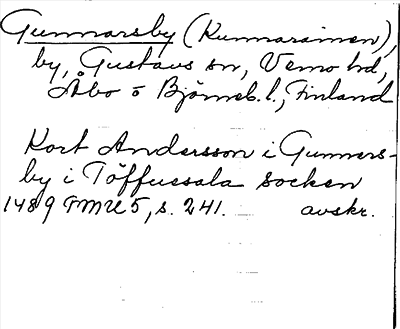 Gunnarsby (Kunnarainen),
by, Gustavs sn, Vemo hd,
Åbo o Björneb. l., Finland
Kort Andersson i Gunners-
by i Töffuesala socken
1489 FMU 5, s. 241. avskr.